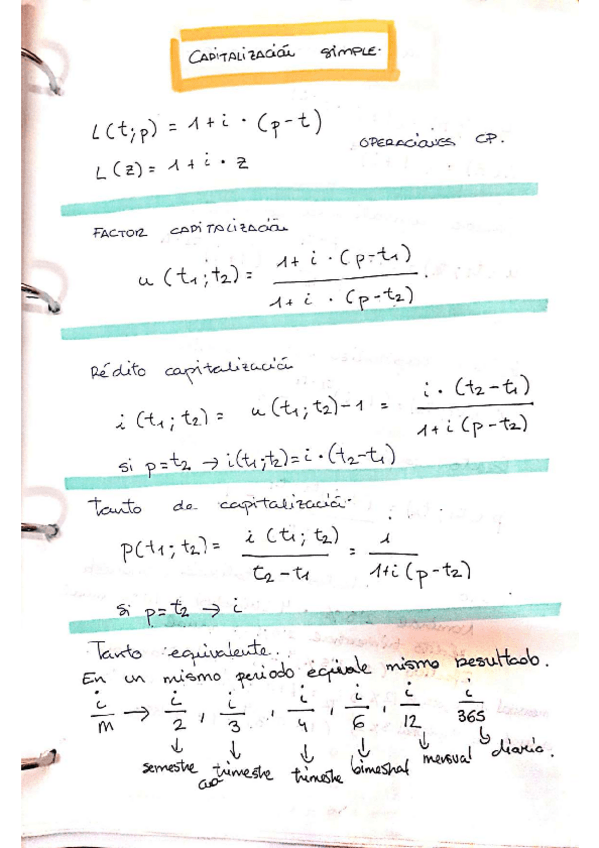 CAPITALIZACIÓN SIMPLE.
L(t;p) = 1+i·(p-t)
OPERACIONES CP.
L(z) = 1+i·z
FACTOR CAPITALIZACIÓN
u(t1;t2) = 1+i·(p-t1) / 1+i·(p-t2).
Rédito capitalización
i(t1;t2) = u(t1;t2)-1 = i·(t2-t1) / 1+i(p-t2)
si p=t2 → i(t1;t2)=i·(t2-t1)
Tanto de capitalización.
p(t1;t2) = i(t1;t2) / t2-t1 = i / 1+i(p-t2)
si p=t2 → i
Tanto equivalente...
En un mismo periodo equivale mismo resultado.
i/m → i/2, i/3, i/4, i/6, i/12 i/365
↓ ↓ ↓ ↓ ↓ ↓
semestre cuatrimestre trimestre bimeshal mensual diario.